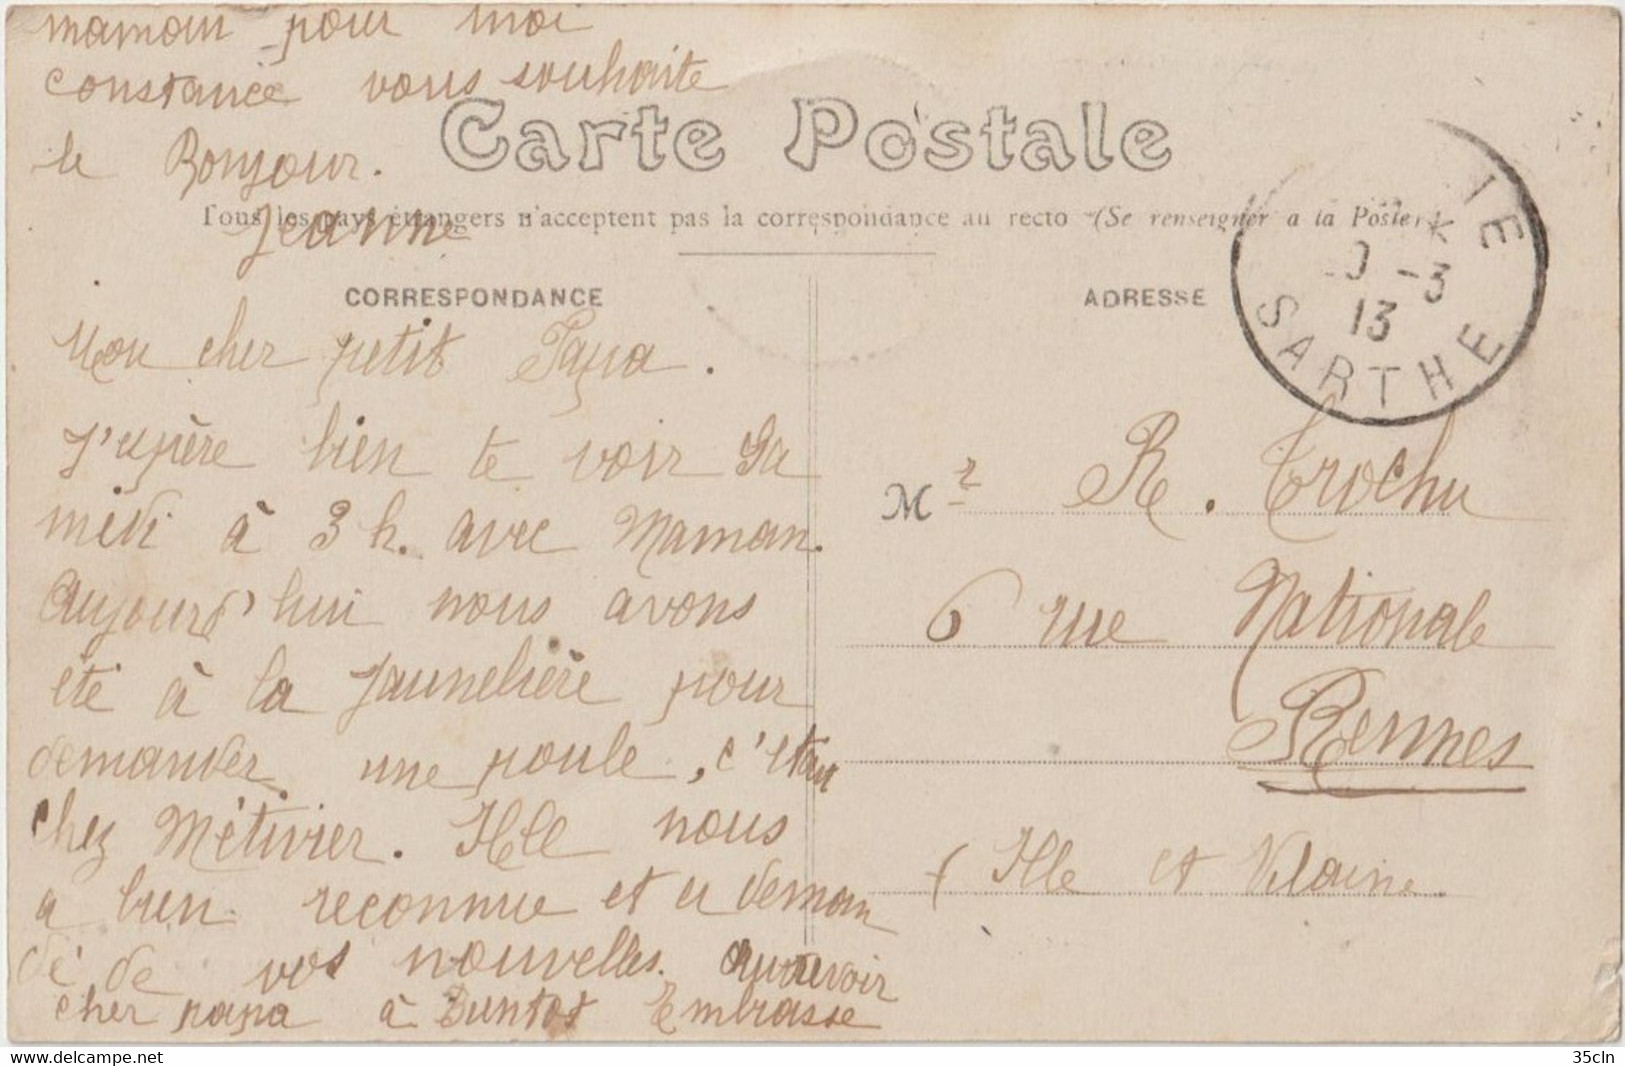 maman pour moi
constance vous souhaite
le Bonjour.
Jeanne
Carte Postale
Tous les pays étrangers n'acceptent pas la correspondance au recto (Se renseigner a la Poste)
CORRESPONDANCE
ADRESSE
IE
0 -3
13
SARTHE
Mon cher petit Papa.
J'espère bien te voir Sa
medi à 3 h. avec Maman.
Aujourd'hui nous avons
été à la Jaunelière pour
demander une poule, c'etai
chez Métivier. Elle nous
a bien reconnue et a deman
dé de vos nouvelles. Auravoir
cher papa à Buntot Embrasse
Mr R. Trochu
6 rue Nationale
Rennes
(Ille et Vilaine.
35cln
www.delcampe.net